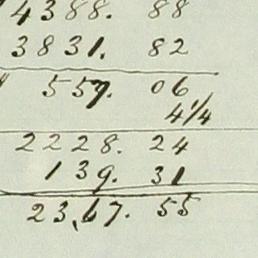 4388. 88
3831. 82
557. 06
4 1/4
2228. 24
139. 31
23,67. 55